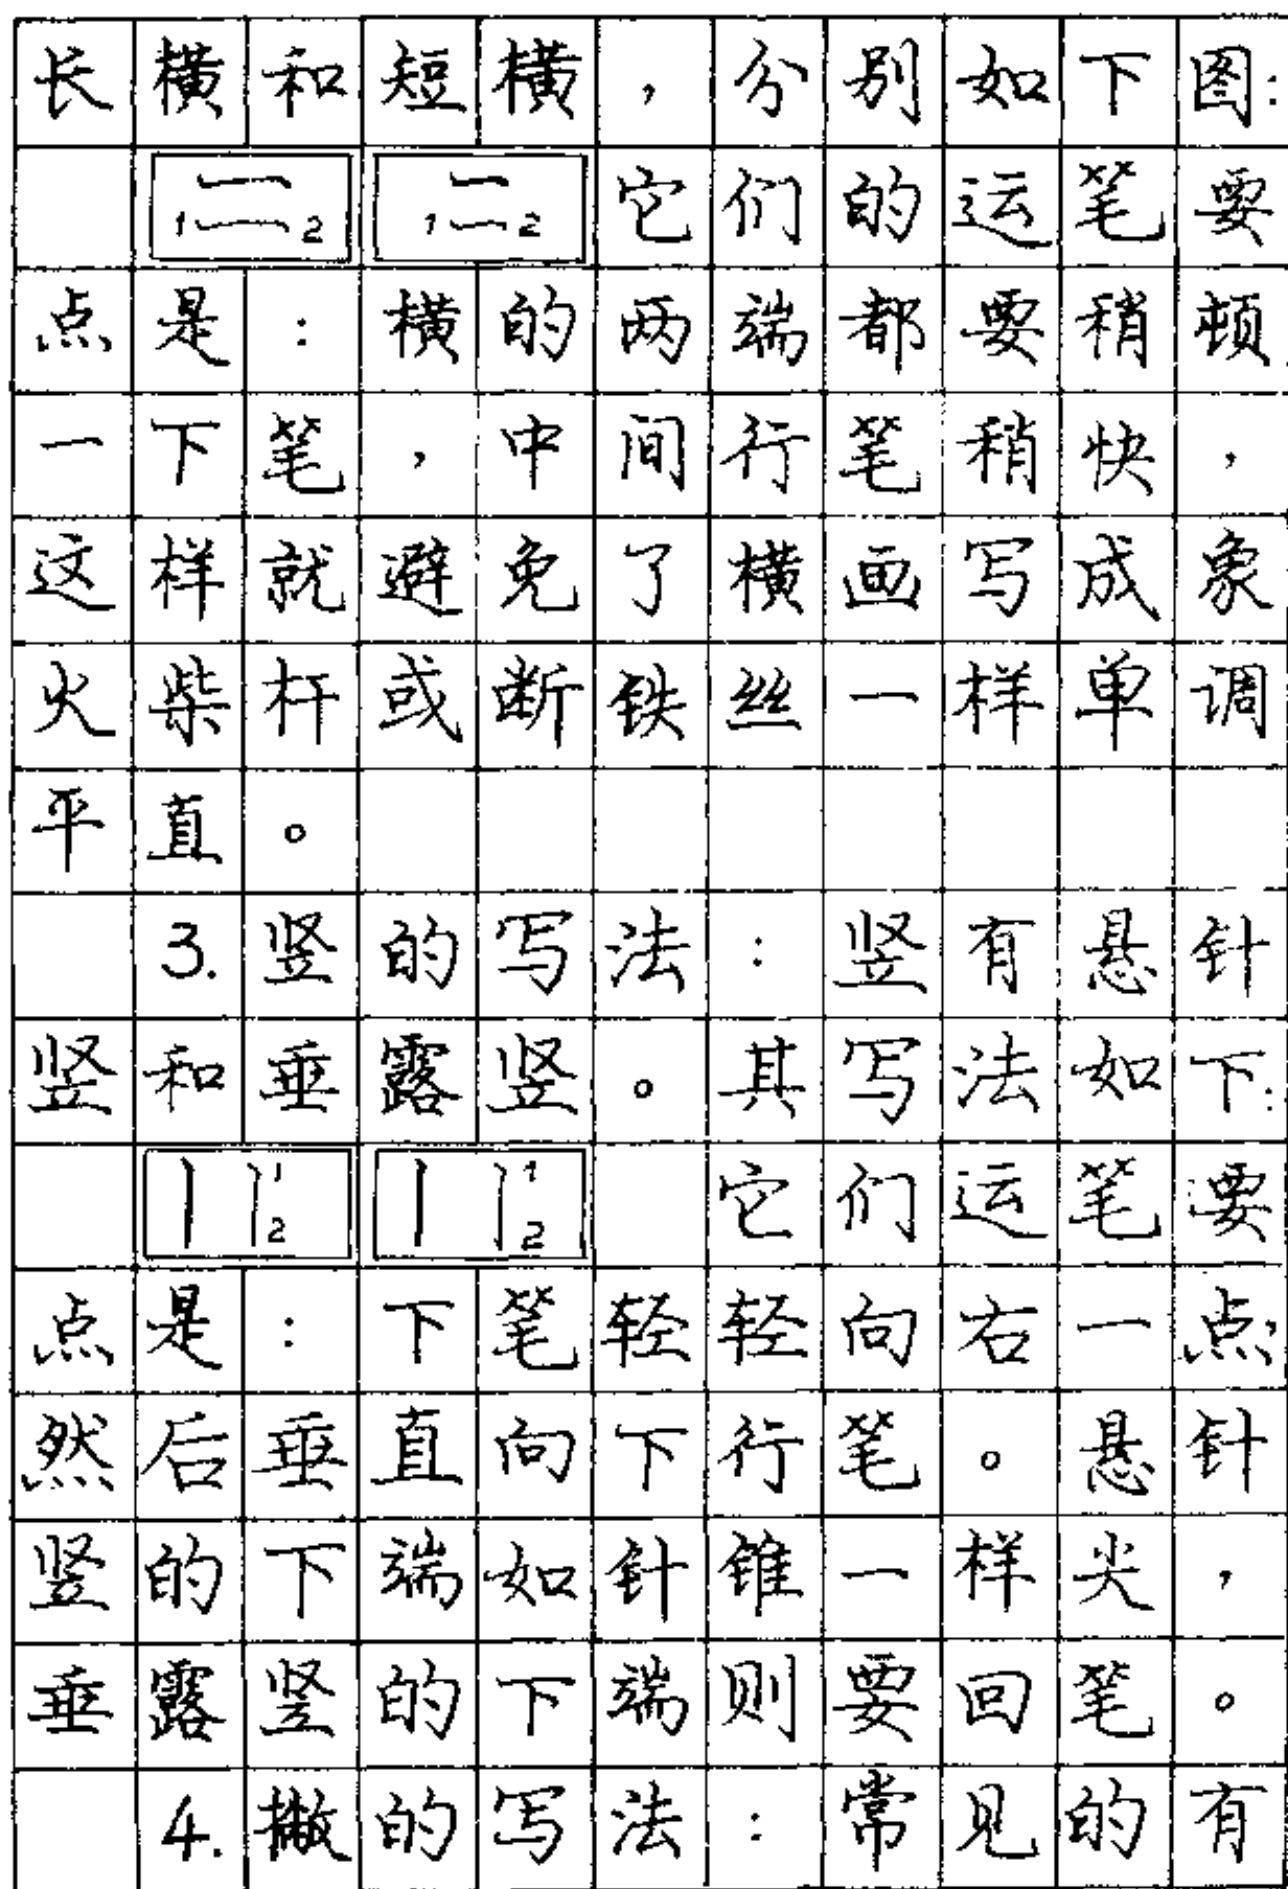 长横和短横，分别如下图：
1 2 1 2 它们的运笔要
点是：横的两端都要稍顿
一下笔，中间行笔稍快，
这样就避免了横画写成象
火柴杆或断铁丝一样单调
平直。
3.竖的写法：竖有悬针
竖和垂露竖。其写法如下：
1 2 1 2 它们运笔要
点是：下笔轻轻向右一点，
然后垂直向下行笔。悬针
竖的下端如针锥一样尖，
垂露竖的下端则要回笔。
4.撇的写法：常见的有